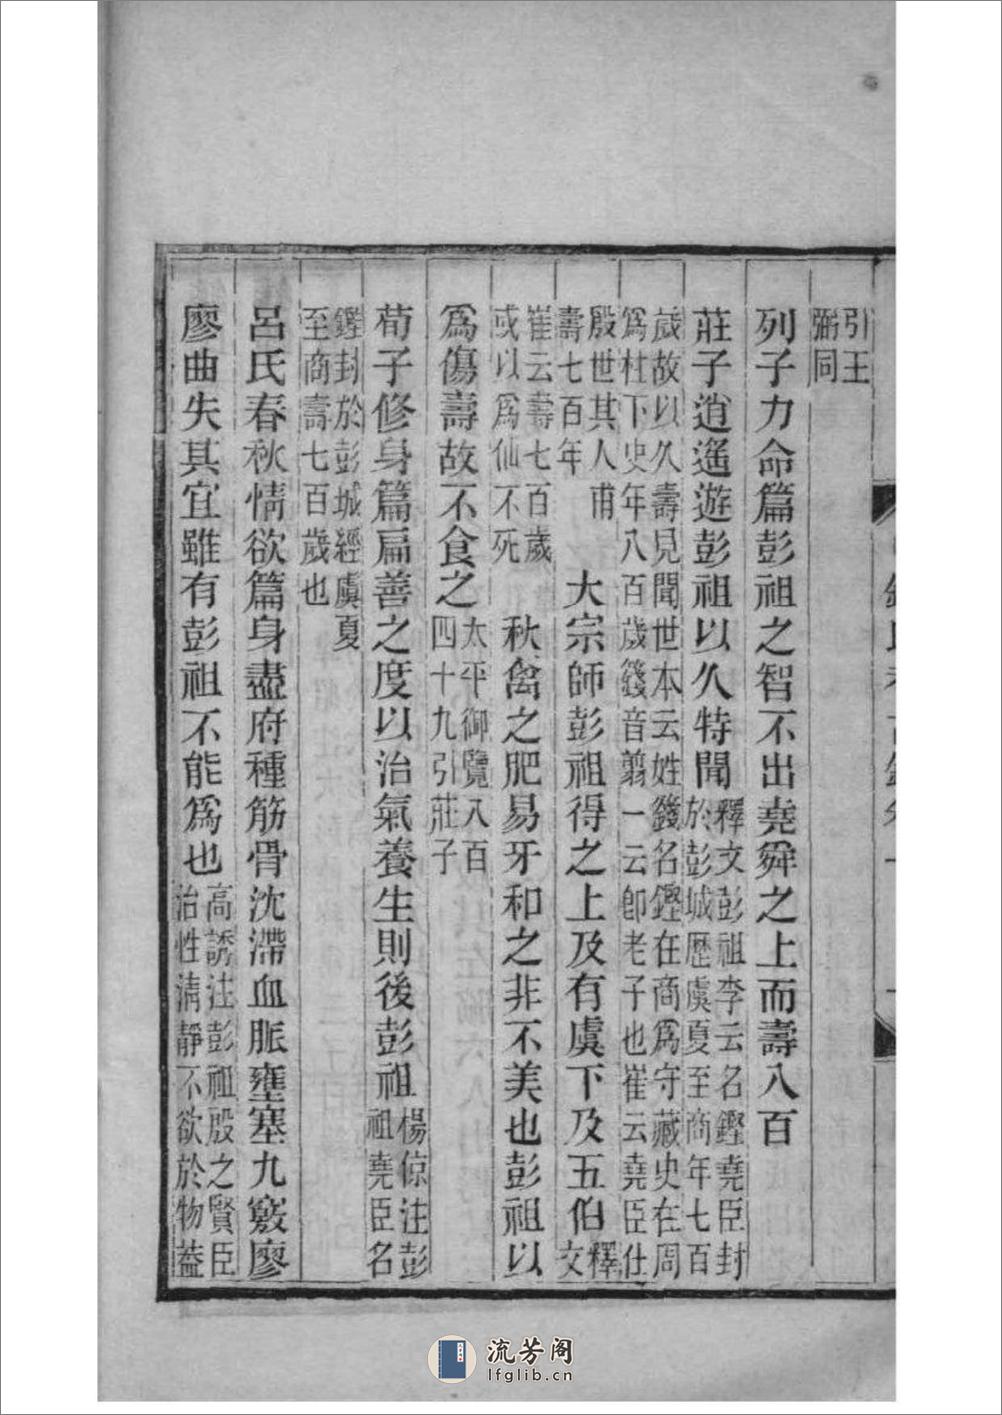 引王
弼同
列子力命篇彭祖之智不出堯舜之上而壽八百
莊子逍遙遊彭祖以久特聞釋文彭祖李云名鏗堯臣封
於彭城歷虞夏至商年七百
歲故以久壽見聞世本云姓籛名鏗在商爲守藏史在周
爲柱下史年八百歲籛音翦一云卽老子也崔云堯臣仕
殷世其人甫
壽七百年
大宗師彭祖得之上及有虞下及五伯釋
文
崔云壽七百歲
或以爲仙不死
秋禽之肥易牙和之非不美也彭祖以
爲傷壽故不食之太平御覽八百
四十九引莊子
荀子修身篇扁善之度以治氣養生則後彭祖楊倞注彭
祖堯臣名
鏗封於彭城經虞夏
至商壽七百歲也
呂氏春秋情欲篇身盡府種筋骨沈滯血脈壅塞九竅廖
廖曲失其宜雖有彭祖不能爲也高誘注彭祖殷之賢臣
治性淸靜不欲於物葢
流芳阁
lfglib.cn